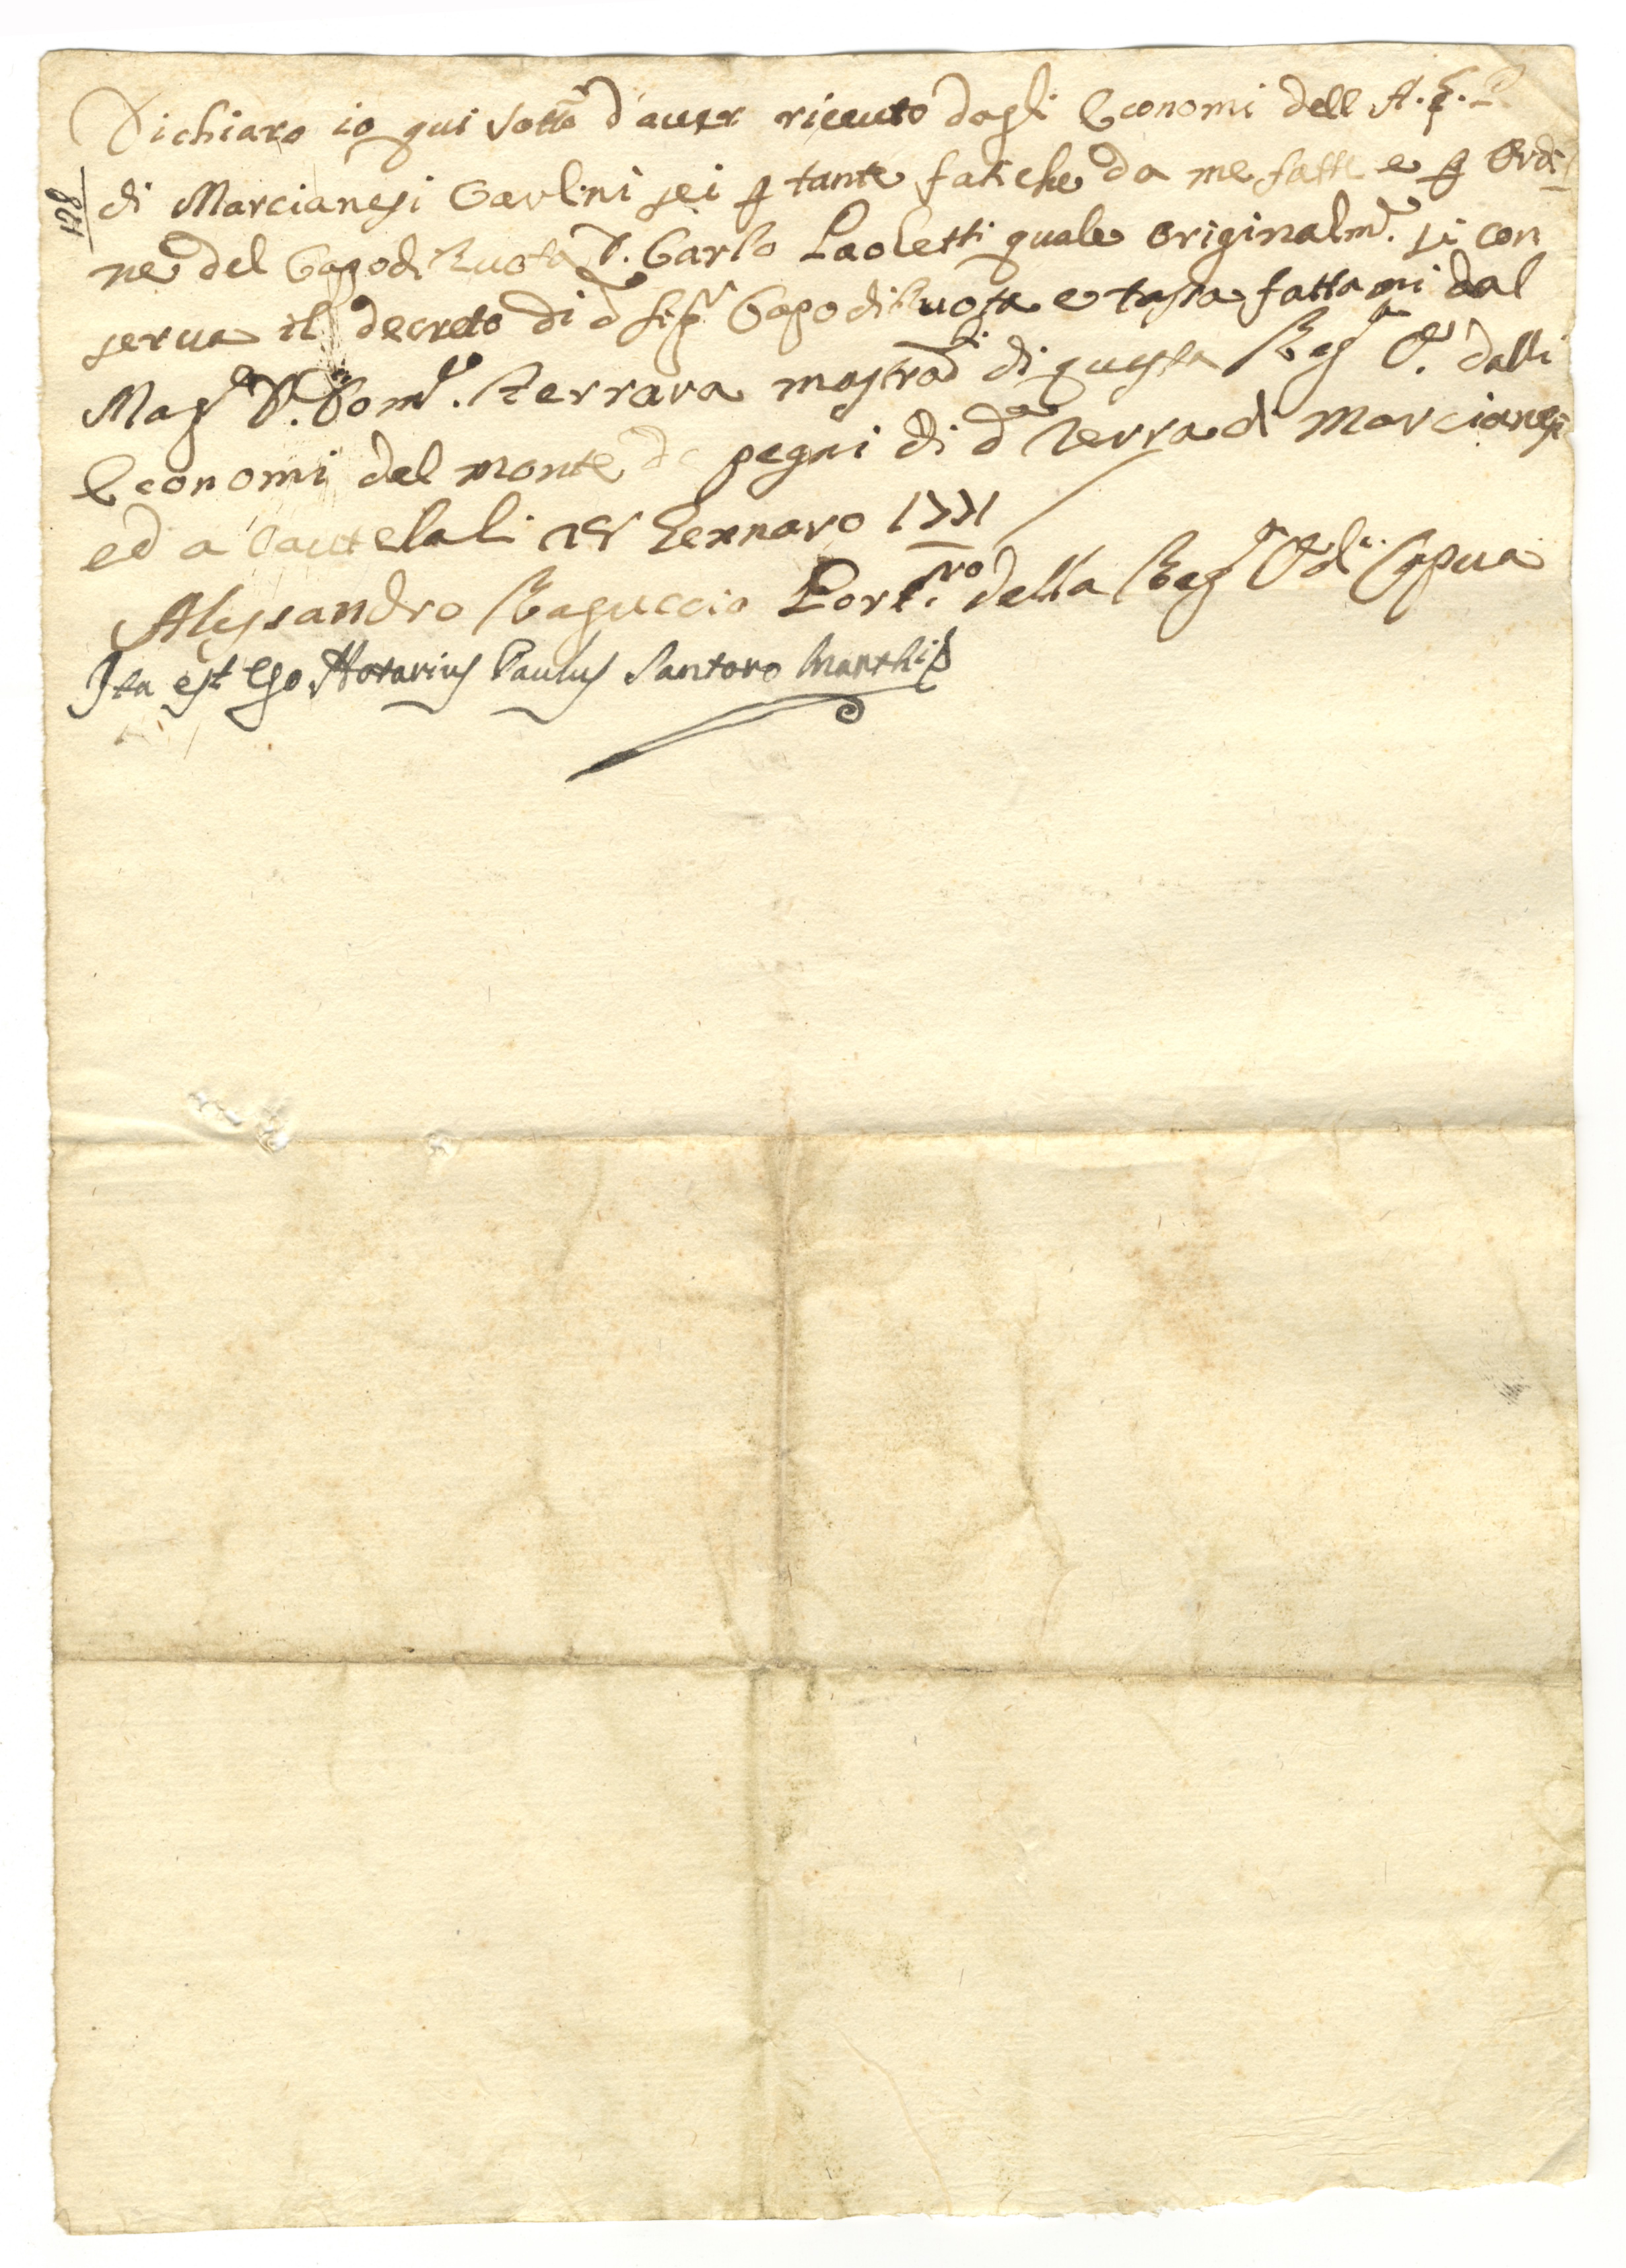 Dichiaro io qui sotto d'aver riceuto dagli Economi dell A. G. P.
128
di Marcianesi Carlini sei p tante fatiche da me fatte e p Ordi
ne del Capo di Ruota D. Carlo Paoletti quale originalm.e si con
serva il decreto di d.o Sig.r Capo di Ruota e tassa fattami dal
Mag.co D. Dom.co Ferrara mastrod.i di questa Reg.a C. dalli
Economi del monte de pegni di d.a Terra di Marcianesi
ed a cautela li Gennaro 1771
Alessandro Raguccio Port.ro della Reg.a C. di Capua
Ita est Ego Notarius Paulus Santoro